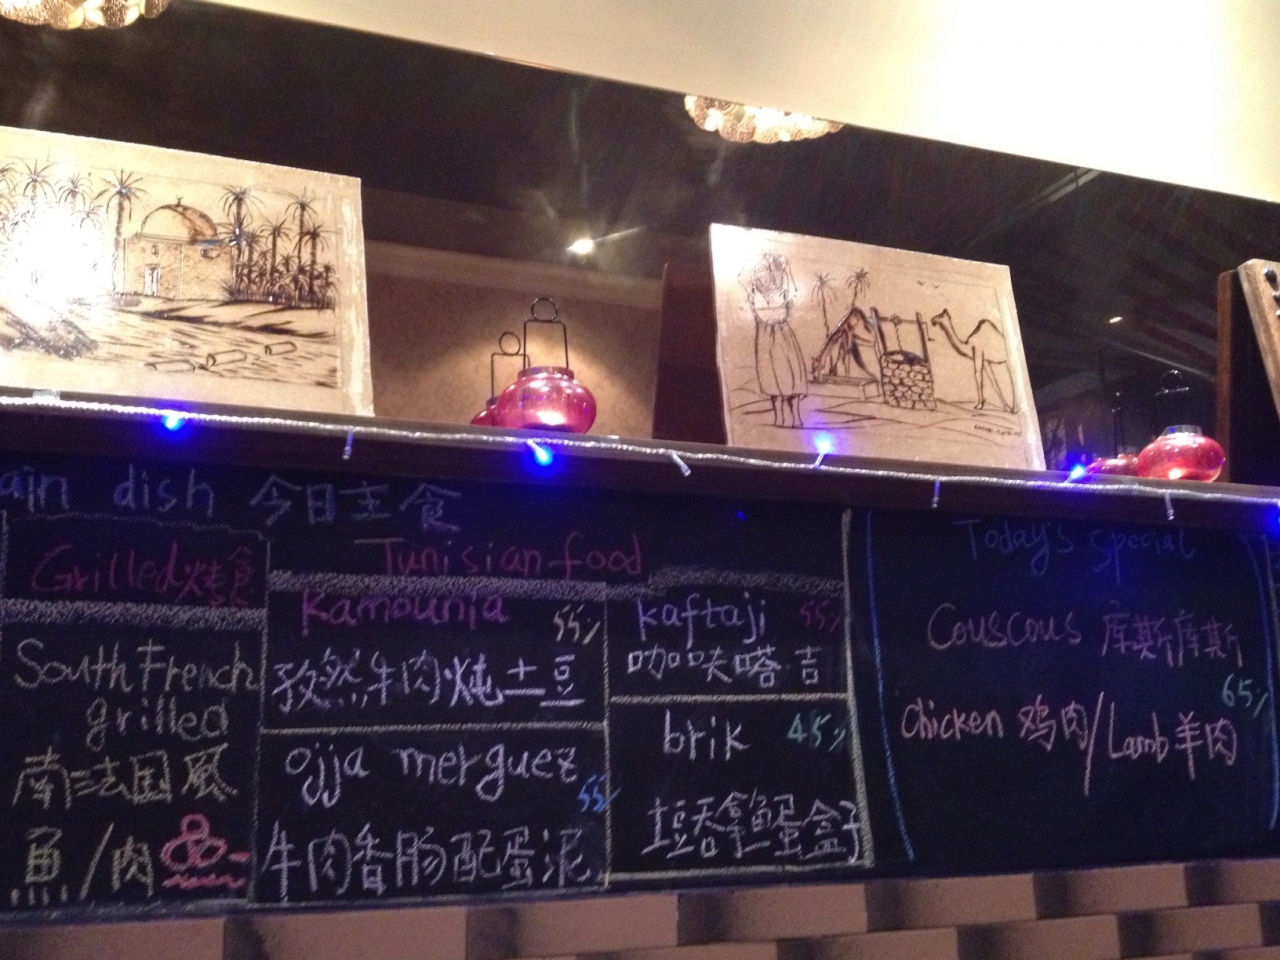 ain dish 今日主食
Grilled烤食
South French
grilled
南法国風
魚/肉
Tunisian food
Kamounia 55/
孜然牛肉炖土豆
ojja merguez
55/
牛肉香肠配蛋泥
kaftaji 55/
咖呋嗒吉
brik 45/
吞拿鱼蛋盒子
Today's special
Couscous 库斯库斯
65/
Chicken 鸡肉/Lamb羊肉